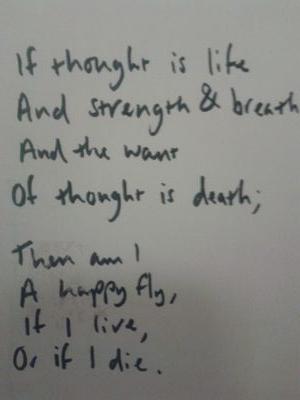 If thought is life
And strength & breath
And the want
Of thought is death;
Then am I
A happy fly,
If I live,
Or if I die.